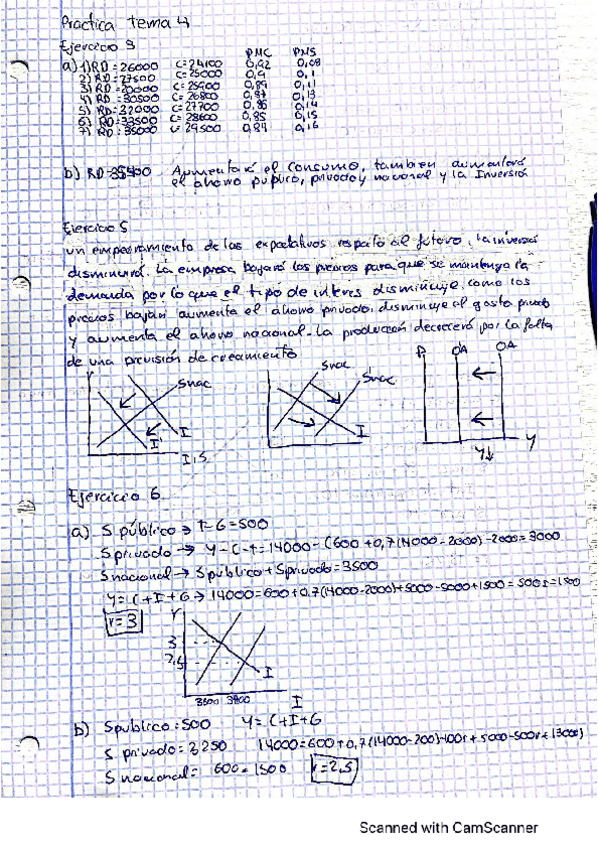 Practica tema 4
Ejercicio 3
PMC PMS
a) 1) RD = 26000 C = 24100 0,92 0,08
2) RD = 27500 C = 25000 0,9 0,1
C = 25900 0,89 0,11
4) RD = 30500 C = 26800 0,87 0,13
5) RD = 32000 C = 27700 0,86 0,14
6) RD = 33500 C = 28600 0,85 0,15
7) RD = 35000 C = 29500 0,84 0,16
b) Aumentará el consumo, tambien aumentará
el ahorro publico, privado y nacional y la Inversión
Ejercicio 5
un empeoramiento de las expectativas respeto al futuro, la inversió
disminuirá. La empresa bajará los precios para que se mantenga la
demanda por lo que el tipo de interes disminuye, como los
precios bajan aumenta el ahorro privado, disminuye el gasto
y aumenta el ahorro nacional. La producción decrecerá por la falta
de una previsión de crecimiento
Snac
I
I'
I, S
Snac S'nac
I
P O'A OA
Y
Y↓
Ejercicio 6
a) S público → t-G = 500
S privado → Y-C-t = 14000 - (600 + 0,7(14000-2000) - 2000 = 3000
S nacional → S publico + S privado = 3500
Y = C+I+G → 14000 = 600 + 0.7(14000-2000) + 5000
r = 3
r
3
2,5
I
3500 3800
I
b) S publico = 500 Y = C+I+G
S privado = 3250 14000 = 600 + 0,7(14000-200) -100r + 5000 - 500r
S nacional = 600 = 1500 r = 2.5
Scanned with CamScanner